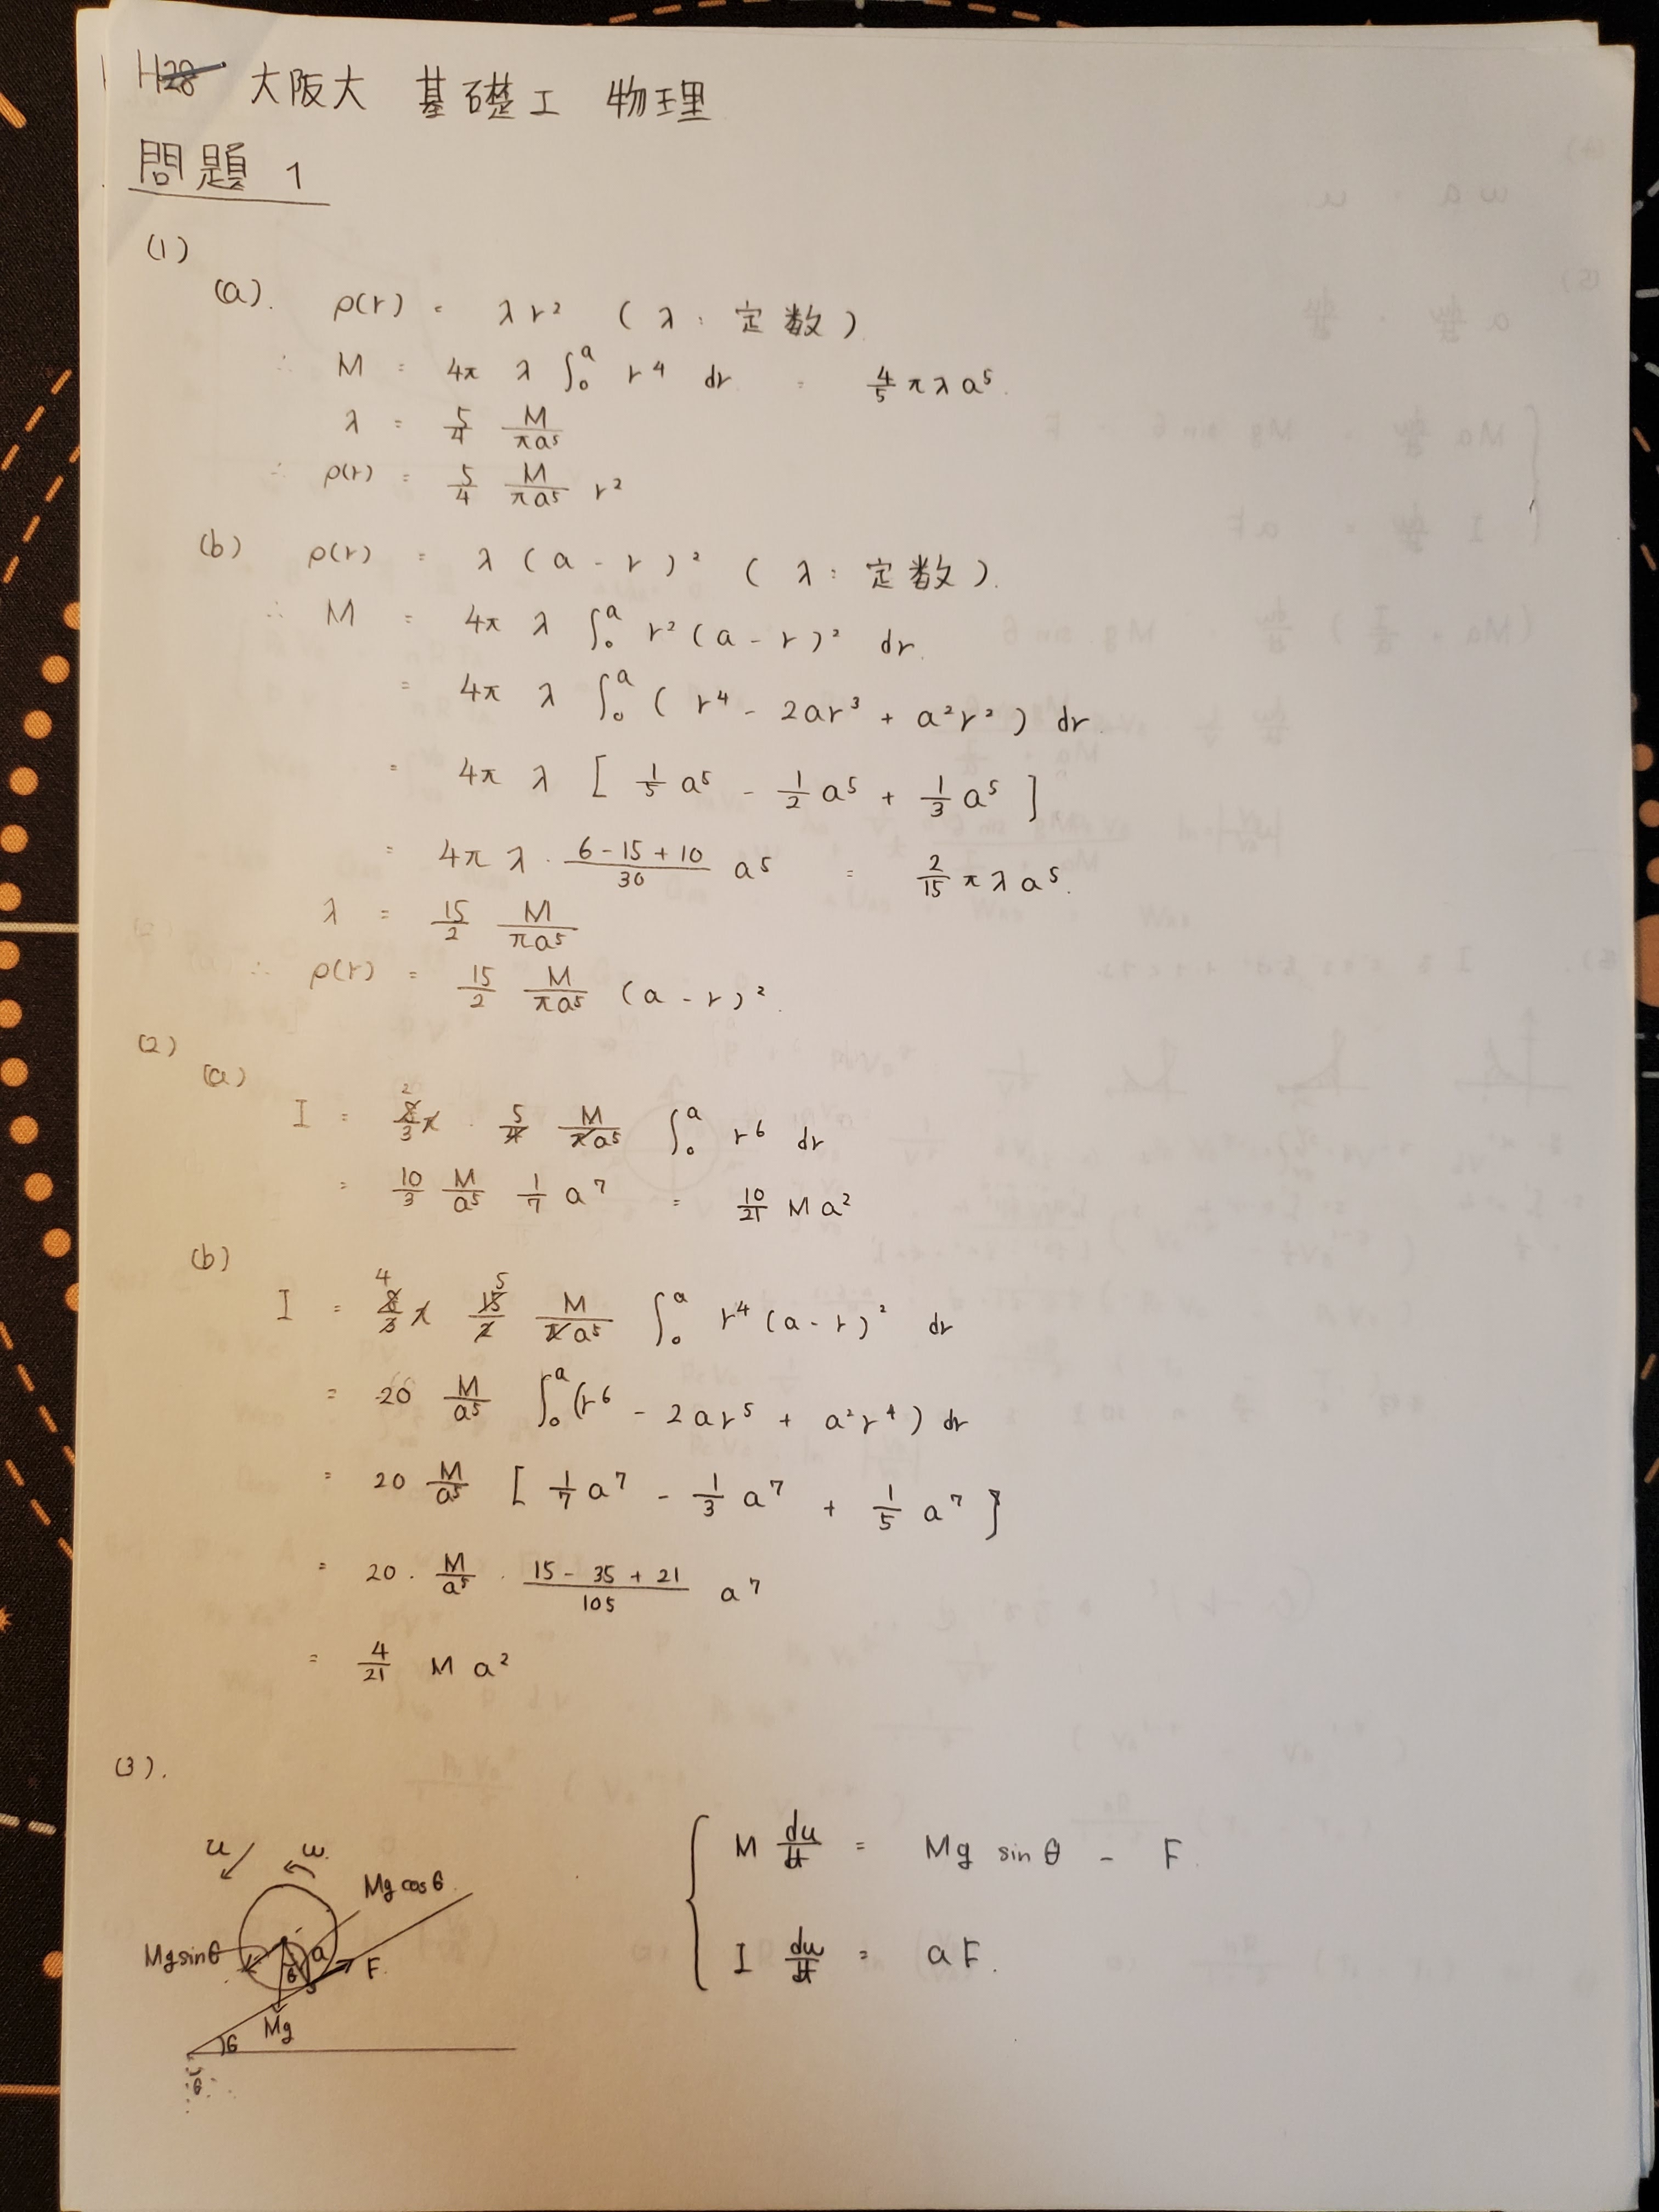 H28 大阪大 基礎工 物理
問題 1
(1)
(a). ρ(r) = λr² (λ: 定数)
∴ M = 4π λ ∫₀ᵃ r⁴ dr = 4/5 πλa⁵.
λ = 5/4 M/πa⁵
∴ ρ(r) = 5/4 M/πa⁵ r²
(b) ρ(r) = λ(a - r)² (λ: 定数).
∴ M = 4π λ ∫₀ᵃ r²(a - r)² dr.
= 4π λ ∫₀ᵃ (r⁴ - 2ar³ + a²r²) dr.
= 4π λ [1/5 a⁵ - 1/2 a⁵ + 1/3 a⁵]
= 4π λ · (6-15+10)/30 a⁵ = 2/15 πλa⁵.
λ = 15/2 M/πa⁵
∴ ρ(r) = 15/2 M/πa⁵ (a - r)².
(2)
(a)
I = 8/3 π · 5/4 M/πa⁵ ∫₀ᵃ r⁶ dr
2
= 10/3 M/a⁵ 1/7 a⁷ = 10/21 Ma²
(b)
4 5
I = 8/3 π 15/2 M/πa⁵ ∫₀ᵃ r⁴(a - r)² dr
= 20 M/a⁵ ∫₀ᵃ (r⁶ - 2ar⁵ + a²r⁴) dr
= 20 M/a⁵ [1/7 a⁷ - 1/3 a⁷ + 1/5 a⁷]
= 20 · M/a⁵ · (15 - 35 + 21)/105 a⁷
= 4/21 Ma²
(3).
u ω
Mg cosθ
Mg sinθ
a
θ
F
Mg
θ
θ
M du/dt = Mg sinθ - F.
I dω/dt = aF.